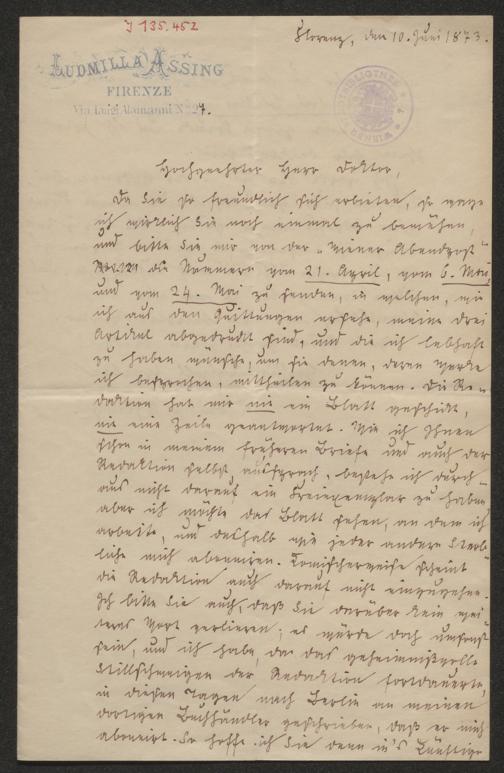 J 135.452
LUDMILLA ASSING
FIRENZE
Via Luigi Alamanni No 27.
Florenz, den 10. Juni 1873.
Hochgeehrter Herr Doktor,
Da Sie so freundlich sich erbieten, so wage
ich wirklich Sie noch einmal zu bemühen,
und bitte Sie mir von der „Wiener Abendpost“
die Nummern vom 21. April, vom 6. Mai,
und vom 24. Mai zu senden, in welchen, wie
ich aus den Quittungen ersehe, meine drei
Artikel abgedruckt sind, und die ich lebhaft
zu haben wünsche, um sie denen, deren Werke
ich besprochen, mittheilen zu können. Die Re-
daktion hat mir nie ein Blatt geschickt,
nie eine Zeile geantwortet. Wie ich Ihnen
schon in meinem früheren Briefe und auch der
Redaktion selbst aussprach, bestehe ich durch-
aus nicht darauf ein Freiexemplar zu haben,
aber ich möchte das Blatt sehen, an dem ich
arbeite, und deshalb wie jeder andere Sterb-
liche mich abonniren. Komischerweise scheint
die Redaktion auch darauf nicht einzugehen.
Ich bitte Sie auch, daß Sie darüber kein wei-
teres Wort verlieren; es würde doch umsonst
sein, und ich habe, da das geheimnißvolle
Stillschweigen der Redaktion fortdauerte,
in diesen Tagen nach Berlin an meinen
dortigen Buchhändler geschrieben, daß er mich
abonnirt. So hoffe ich Sie denn in's Künftige